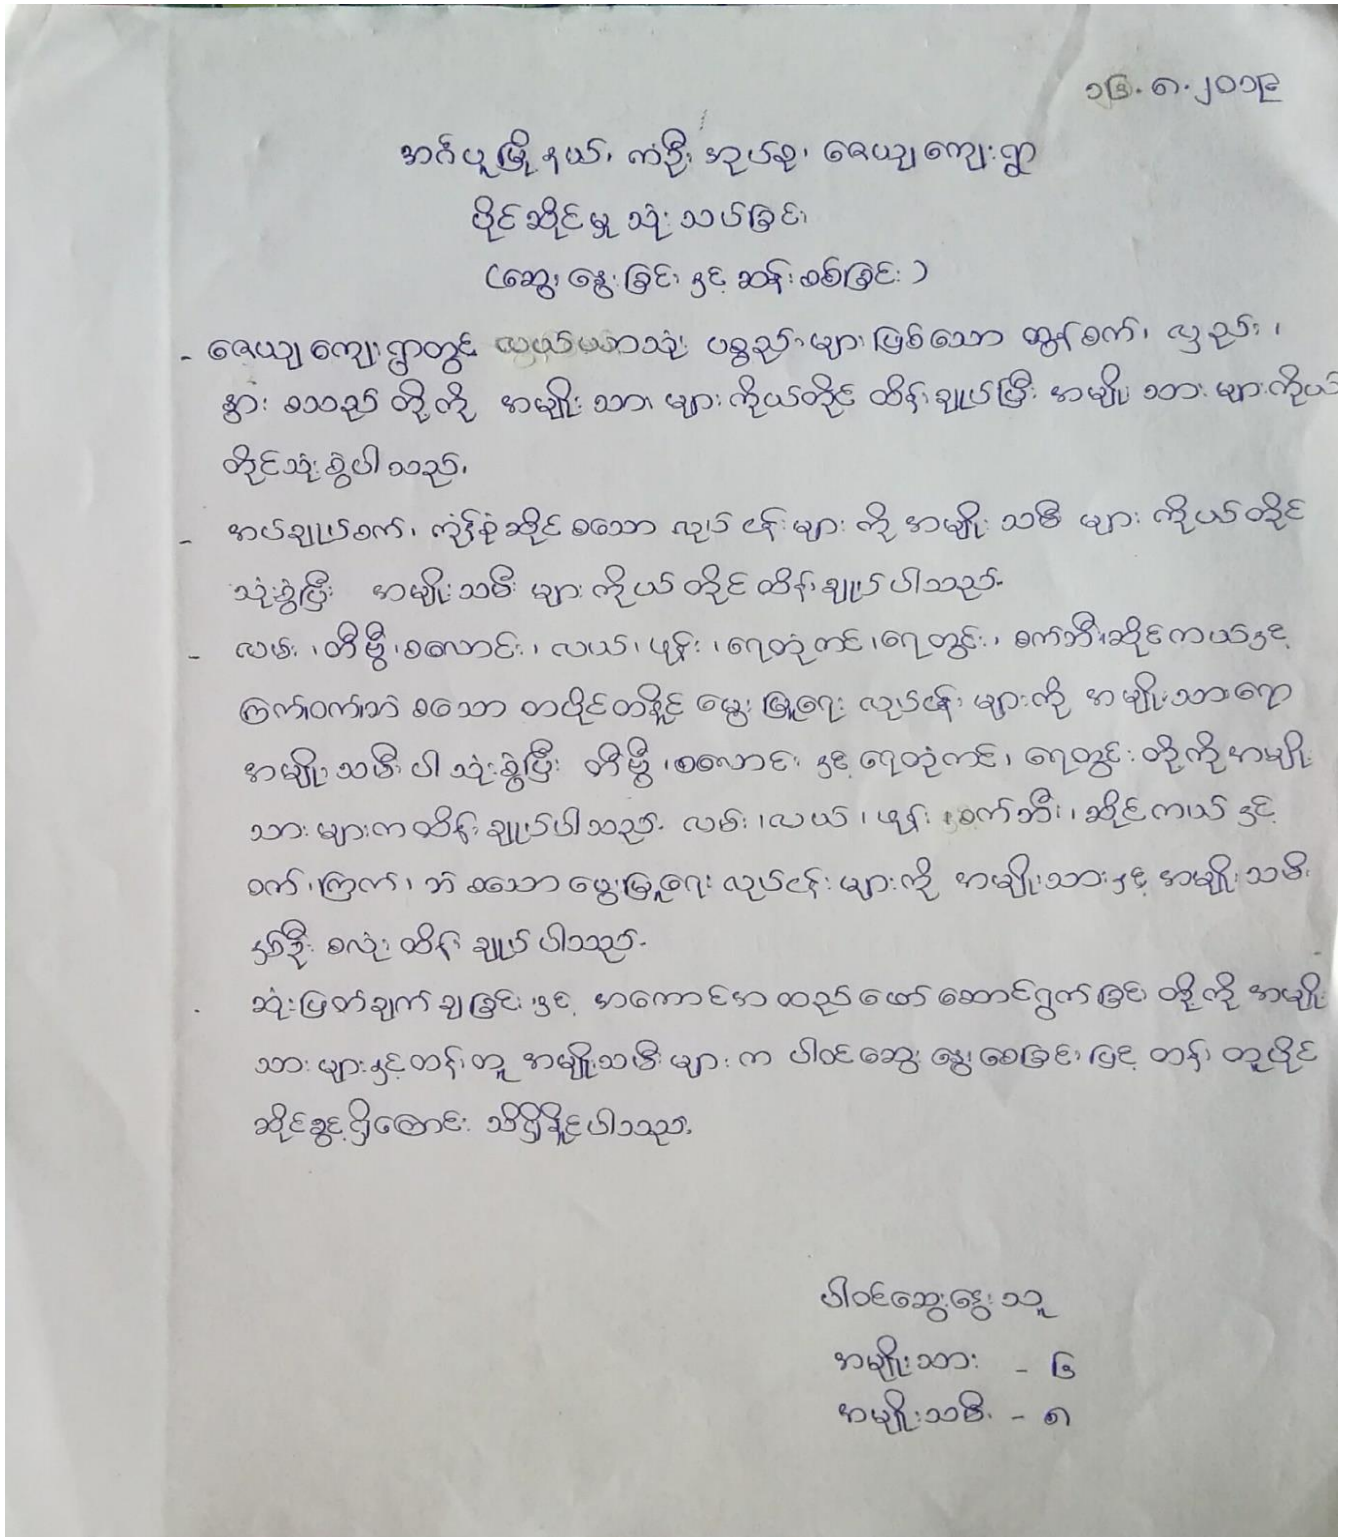 ၁၆.၈.၂၀၁၉
အင်္ဂပူမြို့နယ်၊ ကံဦး အုပ်စု၊ ဇေယျကျေးရွာ
ပိုင်ဆိုင်မှု သုံးသပ်ခြင်း
(ဆွေးနွေးခြင်း နှင့် ဆန်းစစ်ခြင်း)
- ဇေယျကျေးရွာတွင် လယ်ယာသုံး ပစ္စည်းများဖြစ်သော ထွန်စက်၊ လှည်း၊
နွား စသည်တို့ကို အမျိုးသားများကိုယ်တိုင် ထိန်းချုပ်ပြီး အမျိုးသားများကိုယ်
တိုင်သုံးစွဲပါသည်။
- အပ်ချုပ်စက်၊ ကုံစုံဆိုင် စသော လုပ်ငန်းများကို အမျိုးသမီး များ ကိုယ်တိုင်
သုံးစွဲပြီး အမျိုးသမီး များ ကိုယ်တိုင်ထိန်းချုပ်ပါသည်။
- လမ်း၊ တီဗွီ၊ စလောင်း၊ လယ်၊ ဖုန်း၊ ရေတုံကင်၊ ရေတွင်း၊ စက်ဘီး၊ ဆိုင်ကယ်နှင့်
ကြက်၊ ဝက်၊ ဘဲ စသော တပိုင်တနိုင် မွေးမြူရေး လုပ်ငန်းများကို အမျိုးသားရော
အမျိုးသမီးပါ သုံးစွဲပြီး တီဗွီ၊ စလောင်း နှင့် ရေတုံကင်၊ ရေတွင်း တို့ကို အမျိုး
သားများကထိန်းချုပ်ပါသည်။ လမ်း၊ လယ်၊ ဖုန်း၊ စက်ဘီး၊ ဆိုင်ကယ်နှင့်
ဝက်၊ ကြက်၊ ဘဲ စသော မွေးမြူရေး လုပ်ငန်းများကို အမျိုးသားနှင့် အမျိုးသမီး
နှစ်ဦး စလုံး ထိန်းချုပ်ပါသည်။
. ဆုံးဖြတ်ချက်ချခြင်း နှင့် အကောင်အထည်ဖော်ဆောင်ရွက်ခြင်း တို့ကို အမျိုး
သားများနှင့်တန်းတူ အမျိုးသမီးများက ပါဝင်ဆွေးနွေးစေခြင်းဖြင့် တန်းတူပိုင်
ဆိုင်ခွင့်ရှိကြောင်း သိရှိနိုင်ပါသည်။
ပါဝင်ဆွေးနွေးသူ
အမျိုးသား - ၆
အမျိုးသမီး - ၈